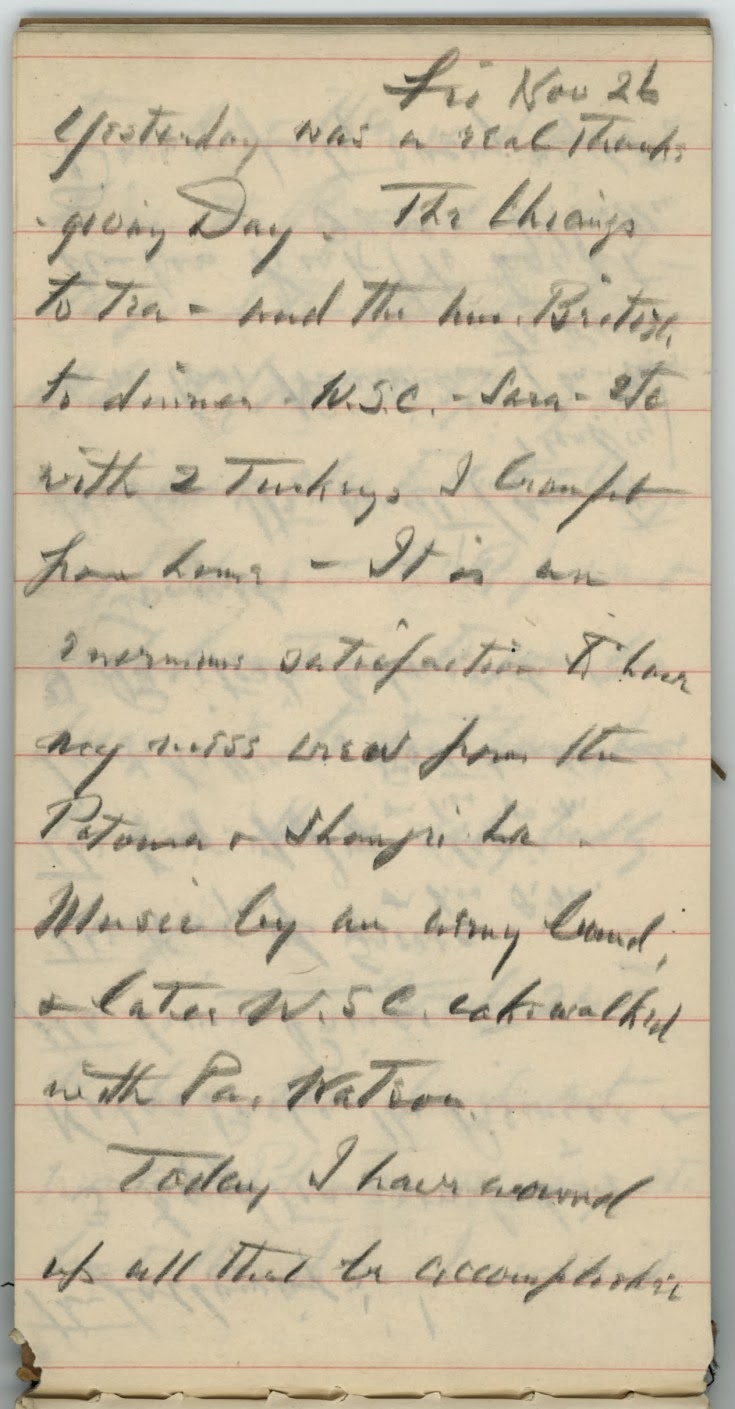 Fri Nov 26
Yesterday was a real Thanks
-giving Day. The Chiangs
to tea - and the hun. British
to dinner - W.S.C. - Sara - etc
with 2 Turkeys I brought
from home - It is an
enormous satisfaction to have
my mess crew from the
Potomac & Shangri La.
Music by an army band,
& later W.S.C. cakewalked
with Pa. Watson.
Today I have wound
up all that be accomplished